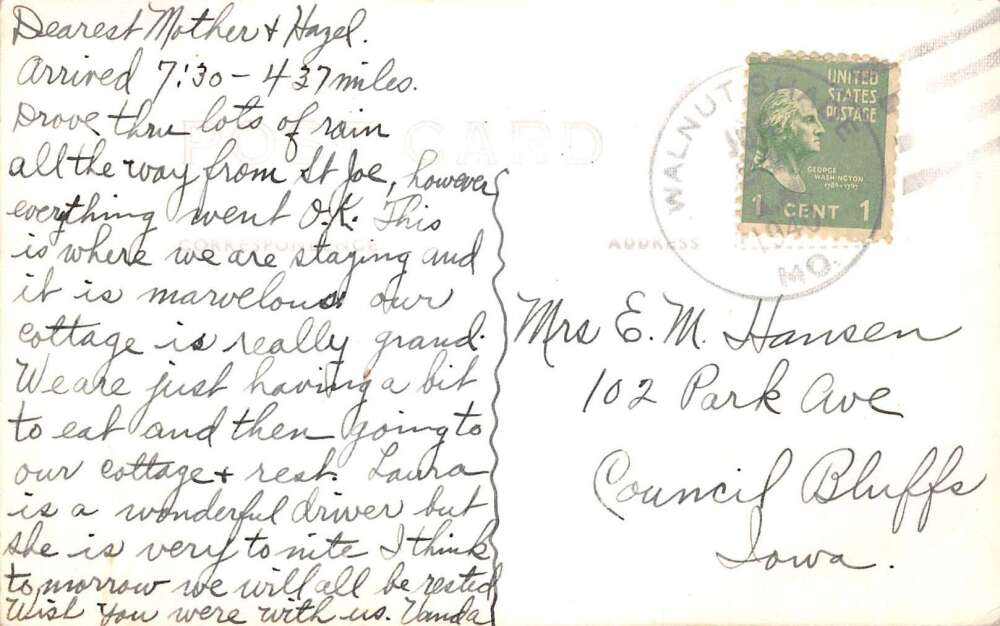 Dearest Mother & Hazel.
Arrived 7:30 - 437 miles.
Drove thru lots of rain
all the way from St Joe, however
everything went O.K. This
is where we are staying and
it is marvelous our
cottage is really grand.
We are just having a bit
to eat and then going to
our cottage & rest. Laura
is a wonderful driver but
she is very to nite I think
tomorrow we will all be rested
Wish you were with us. Vanda
POST CARD
CORRESPONDENCE
ADDRESS
WALNUT
1940
MO.
UNITED
STATES
POSTAGE
GEORGE
WASHINGTON
1789-1797
1 CENT 1
Mrs E. M. Hansen
102 Park Ave
Council Bluffs
Iowa.